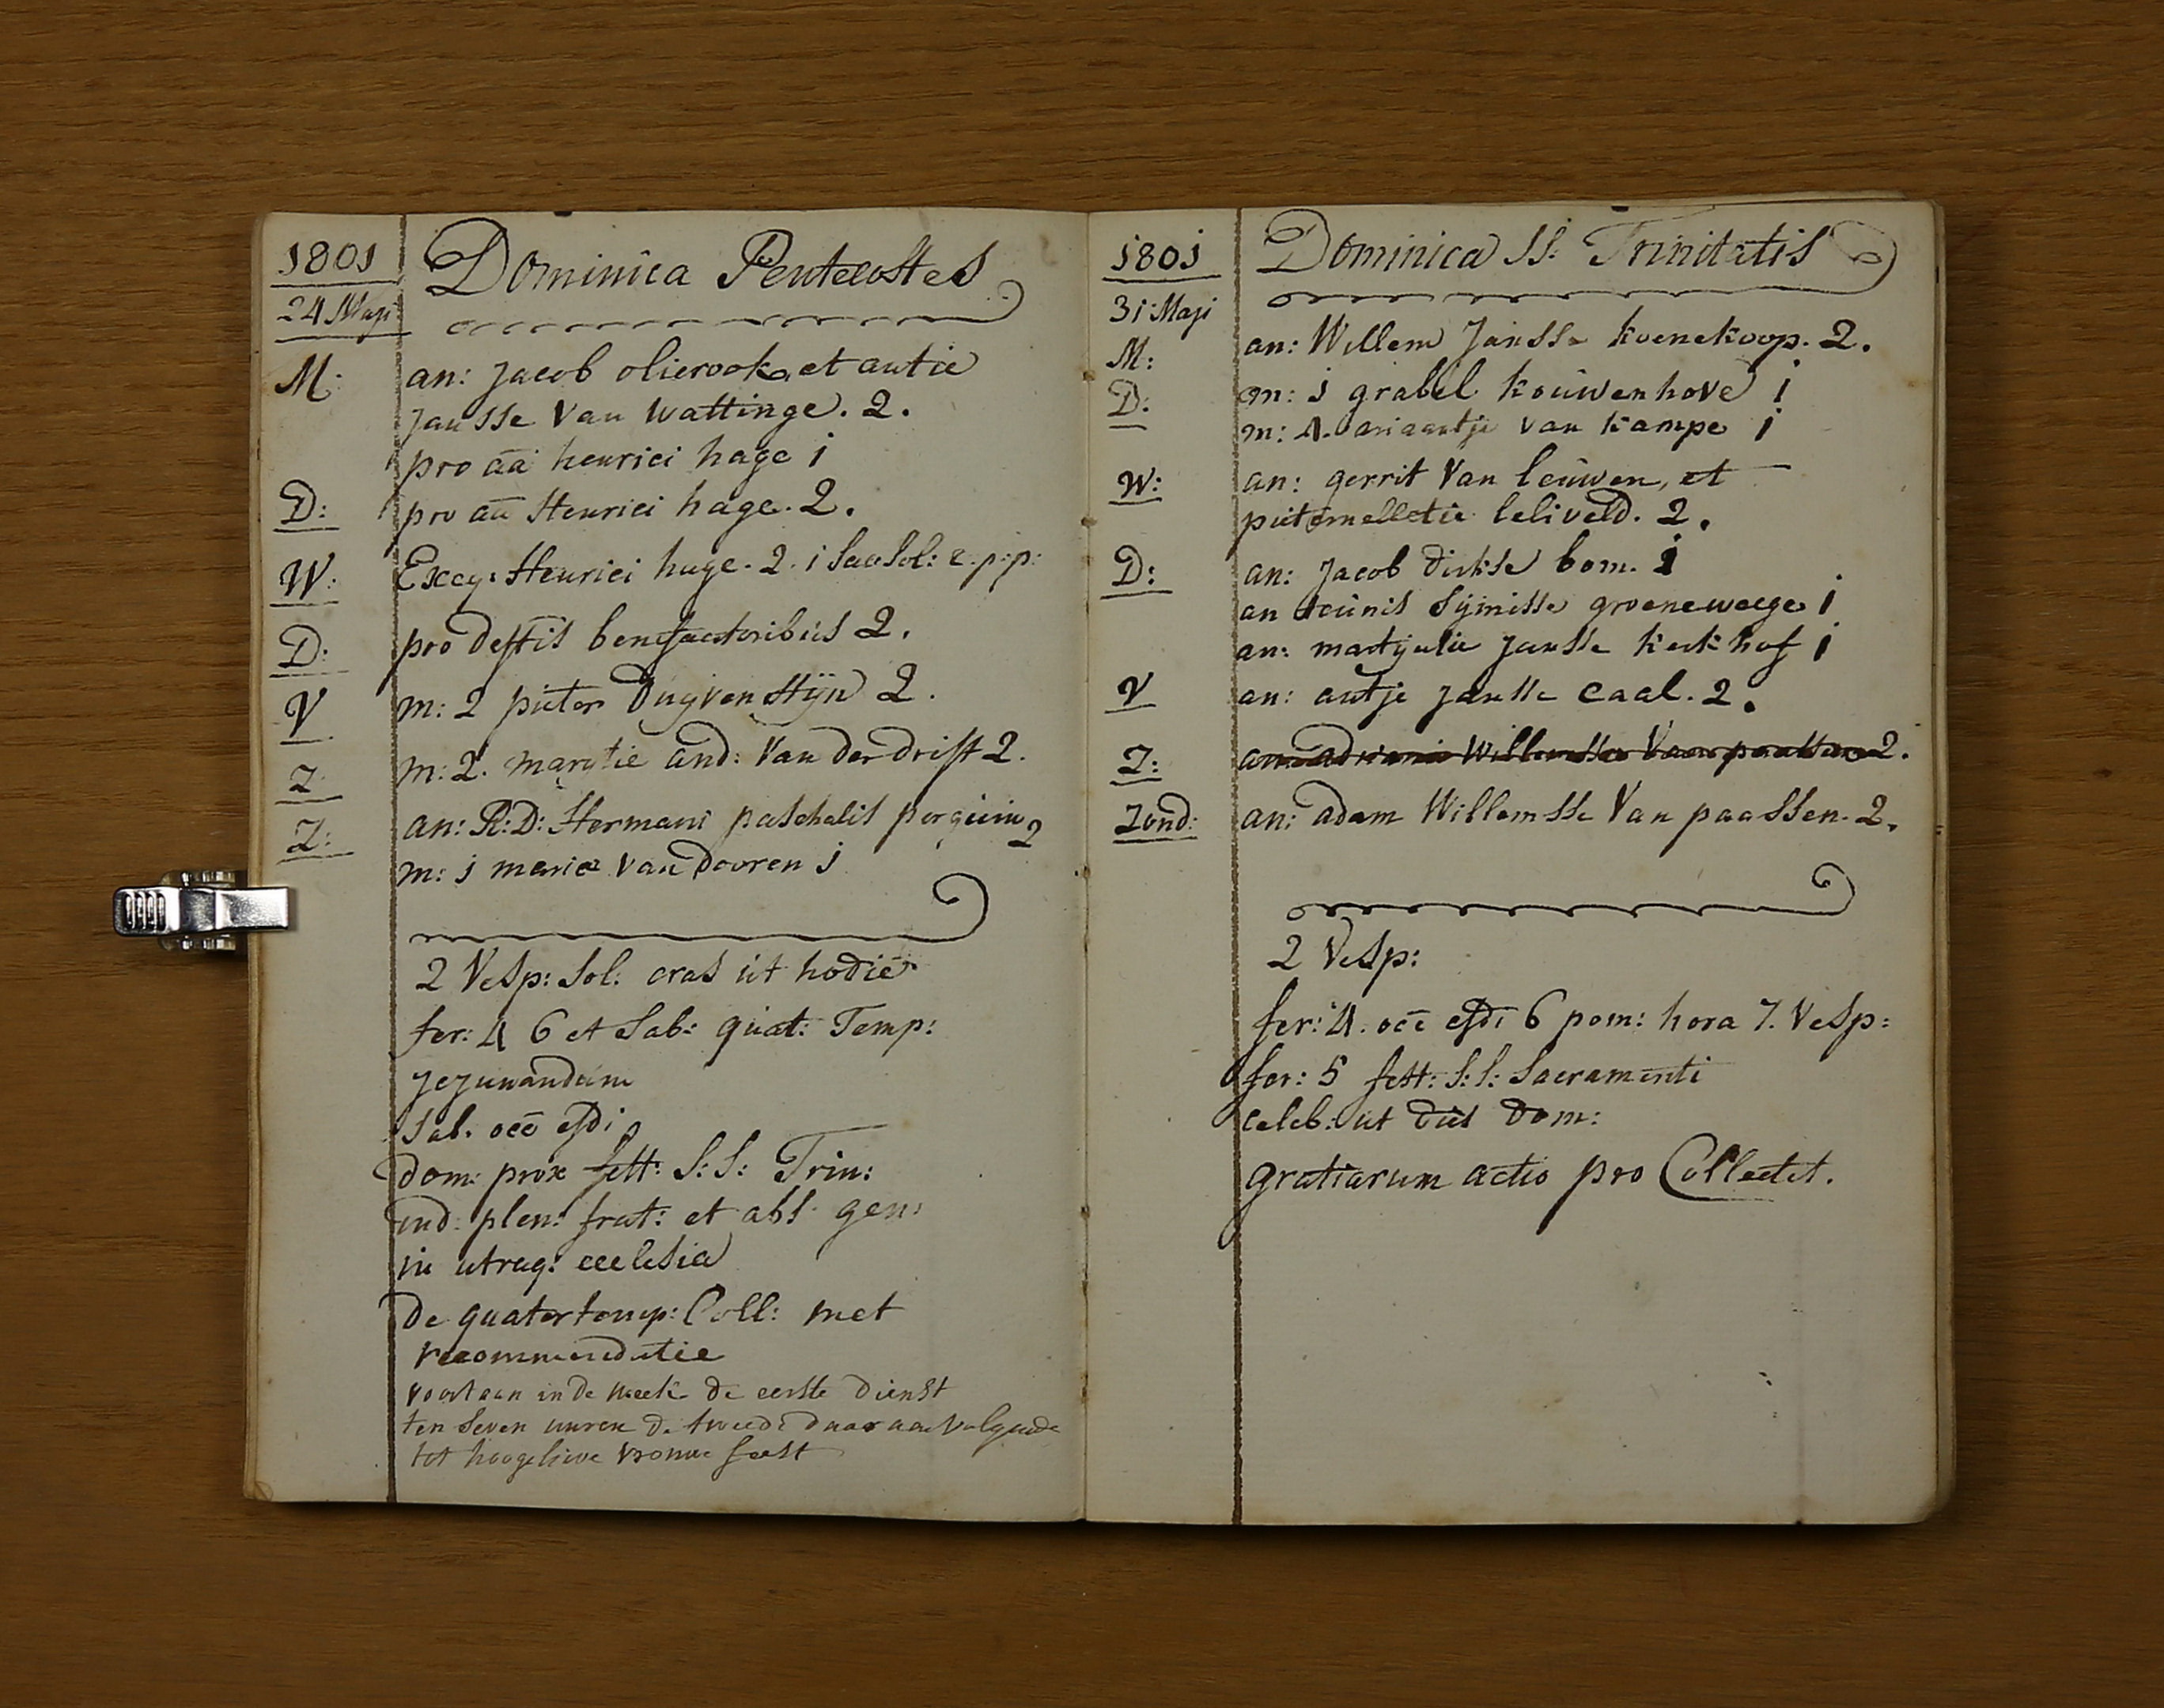 1801
24 Maji
Dominica Pentecostes
M: an: Jacob olierook et antie
Jansse Van Wattinge. 2.
pro aā henrici hage j
D: pro aā Henrici hage. 2.
W: Exeq: Henrici hage. 2. i Sac Sol: e. p: p:
D: pro deftis benefactoribus 2.
V m: 2 pieter Duyvenstijn 2.
Z m: 2. marytie and: Van der drift 2.
Z: an: R: D: Hermani paschalis 2
m: j maria van Dooren j
2 Vesp: Sol: cras ut hodie
fer: 4 6 et Sab: quat: Temp:
Jejunandum
Sab. occ ofdi
dom: prox fest: S: S: Trin:
ind: plen: frat: et abs: gen:
in utraq: ecclesia
De quatertemp: Coll: met
recommendatie
voortaan in de week de eerste dienst
ten seven uuren de tweede daar aan volgende
tot hoogelieve vrouwe feest
1801
31 Maji
Dominica SS: Trinitatis
M: an: Willem Jansse koenekoop. 2.
D: m: j grabel kouwenhove j
m: 1. ariaantje van kampe j
W: an: gerrit Van leuwen, et
pieternelletie leliveld. 2.
D: an: Jacob dirkse bom. j
an teunis Sijmisse groeneweege j
an: martijntie Jansse kerkhof j
V an: antje Jansse Caal. 2.
Z: an: adriana Willemsse Van paassen 2.
Zond: an: adam Willemsse Van paassen. 2.
2 Vesp:
fer: 4. occ ofdi 6 pom: hora 7. Vesp:
fer: 5 fest: S: S: Sacramenti
celeb: ut dies dom:
gratiarum actio pro Collectis.